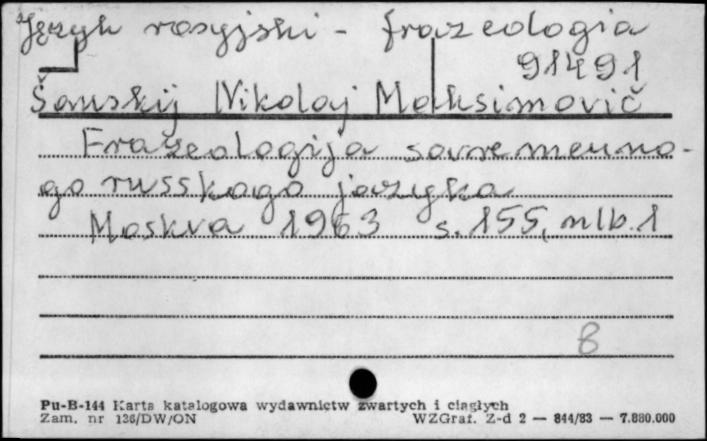 Język rosyjski - frazeologia
91491
Šanskij Nikolaj Maksimovič
Frazeologija sovremenno-
go russkogo jazyka
Moskva 1963 s. 155, nlb. 1
8
Pu-B-144 Karta katalogowa wydawnictw zwartych i ciągłych
Zam. nr 136/DW/ON WZGraf. Z-d 2 — 844/83 — 7.880.000